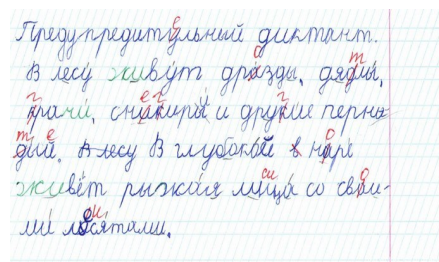 Предупредительный диктант.
В лесу живут дразды, дядлы,
крачи, снакиры и друкие перна-
дии. В лесу В глубокой в наре
живёт рыжкая лица со сваи-
ми лисятами.